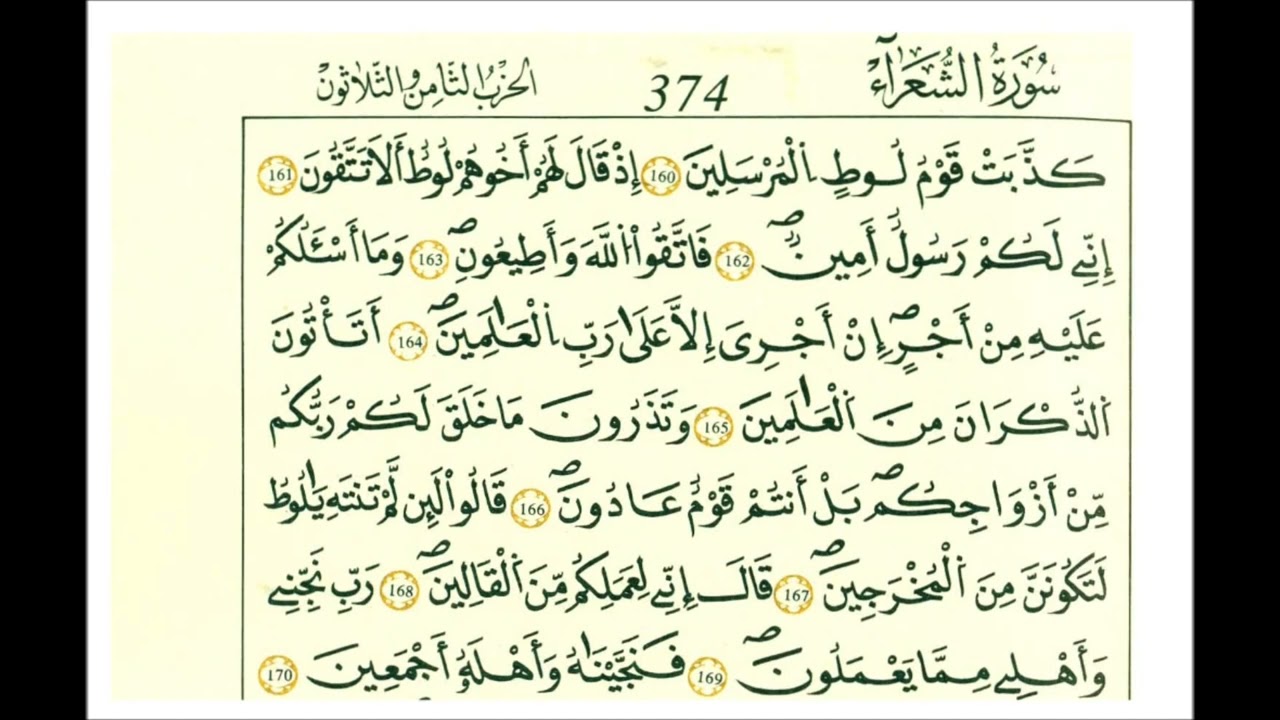 سُورَةُ الشُّعَرَاءِ 374 الحزب الثامن والثلاثون
كَذَّبَتْ قَوْمُ لُوطٍ اِ۬لْمُرْسَلِينَ 160 إِذْ قَالَ لَهُمْ أَخُوهُمْ لُوطٌ أَلَا تَتَّقُونَ 161
إِنِّي لَكُمْ رَسُولٌ أَمِينٌ 162 فَاتَّقُوا اُ۬للَّهَ وَأَطِيعُونِ 163 وَمَا أَسْـَٔلُكُمْ
عَلَيْهِ مِنْ أَجْرٍ إِنْ أَجْرِيَ إِلَّا عَلَىٰ رَبِّ اِ۬لْعَٰلَمِينَ 164 أَتَأْتُونَ
اَ۬لذُّكْرَانَ مِنَ اَ۬لْعَٰلَمِينَ 165 وَتَذَرُونَ مَا خَلَقَ لَكُمْ رَبُّكُم
مِّنْ أَزْوَاجِكُم بَلْ أَنتُمْ قَوْمٌ عَادُونَ 166 قَالُوا لَئِن لَّمْ تَنتَهِ يَٰلُوطُ
لَتَكُونَنَّ مِنَ اَ۬لْمُخْرَجِينَ 167 قَالَ إِنِّي لِعَمَلِكُم مِّنَ اَ۬لْقَالِينَ 168 رَبِّ نَجِّنِي
وَأَهْلِي مِمَّا يَعْمَلُونَ 169 فَنَجَّيْنَٰهُ وَأَهْلَهُ أَجْمَعِينَ 170